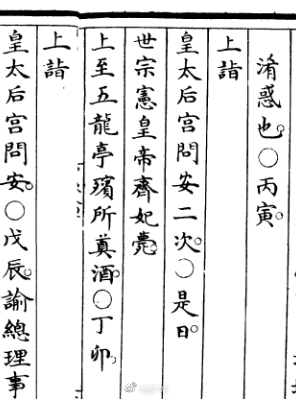 淆惑也。○丙寅。
上詣
皇太后宮問安二次。○是日。
世宗憲皇帝齊妃薨。
上至五龍亭殯所奠酒。○丁卯。
上詣
皇太后宮問安。○戊辰。諭總理事